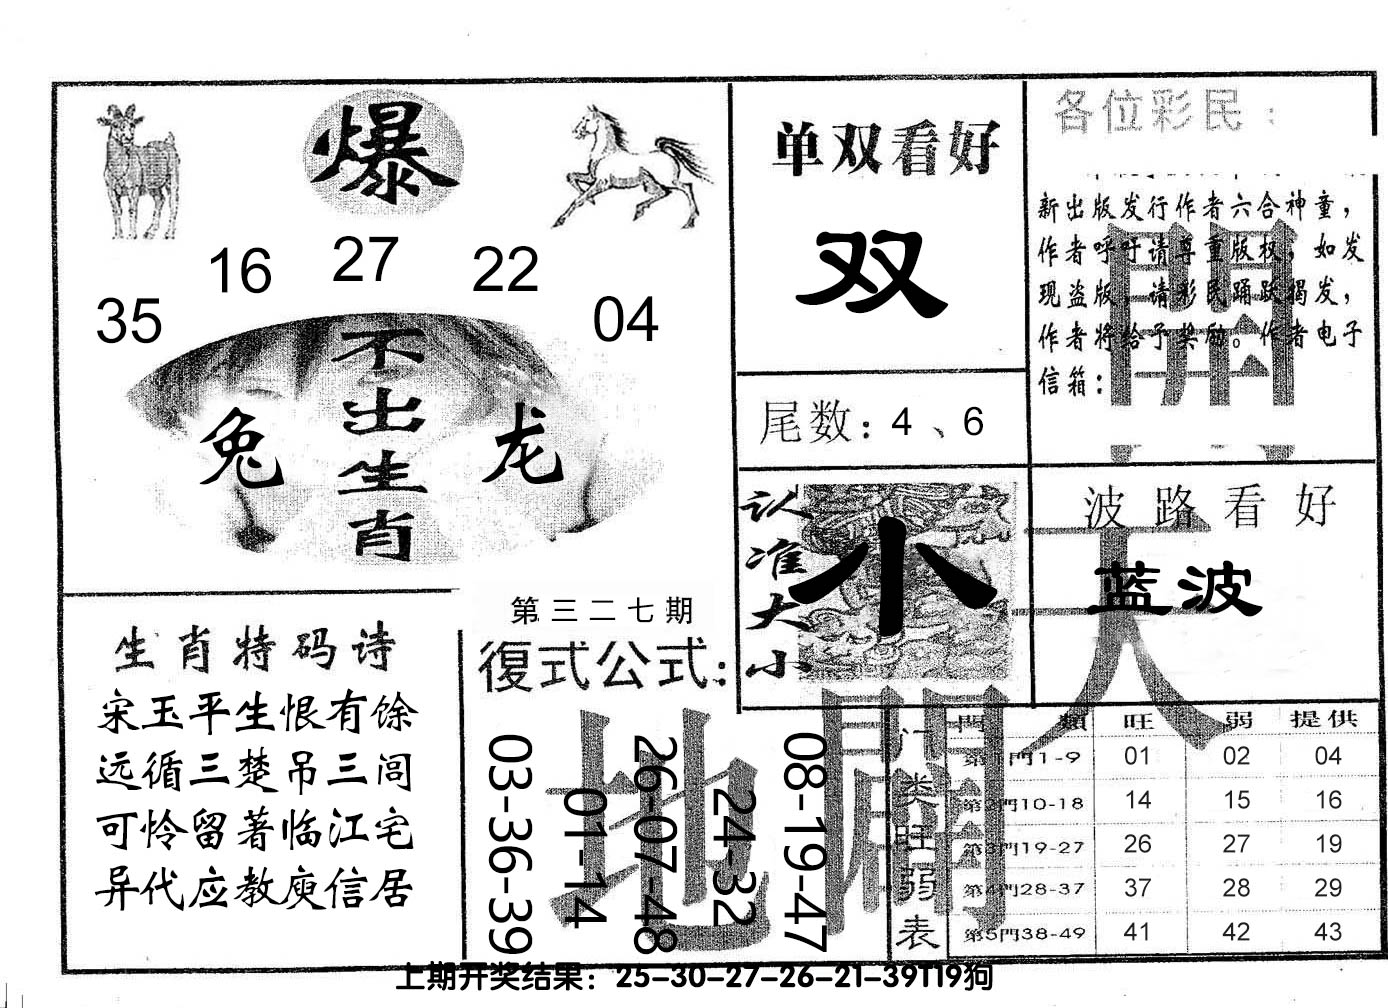 爆
35 16 27 22 04
不出生肖
兔 龙
生肖特码诗
宋玉平生恨有馀
远循三楚吊三闾
可怜留著临江宅
异代应教庾信居
第三二七期
復式公式:
03-36-39
01-14
26-07-48
24-32
08-19-47
单双看好
双
尾数: 4、6
认准大小
小
各位彩民:
新出版发行作者六合神童,
作者呼吁请尊重版权,如发
现盗版,请彩民踊跃揭发,
作者将给予奖励。作者电子
信箱:
波路看好
蓝波
天
地
開
門類 旺 弱 提供
门类旺弱表
第1門1-9 01 02 04
第2門10-18 14 15 16
第3門19-27 26 27 19
第4門28-37 37 28 29
第5門38-49 41 42 43
上期开奖结果: 25-30-27-26-21-39T19狗